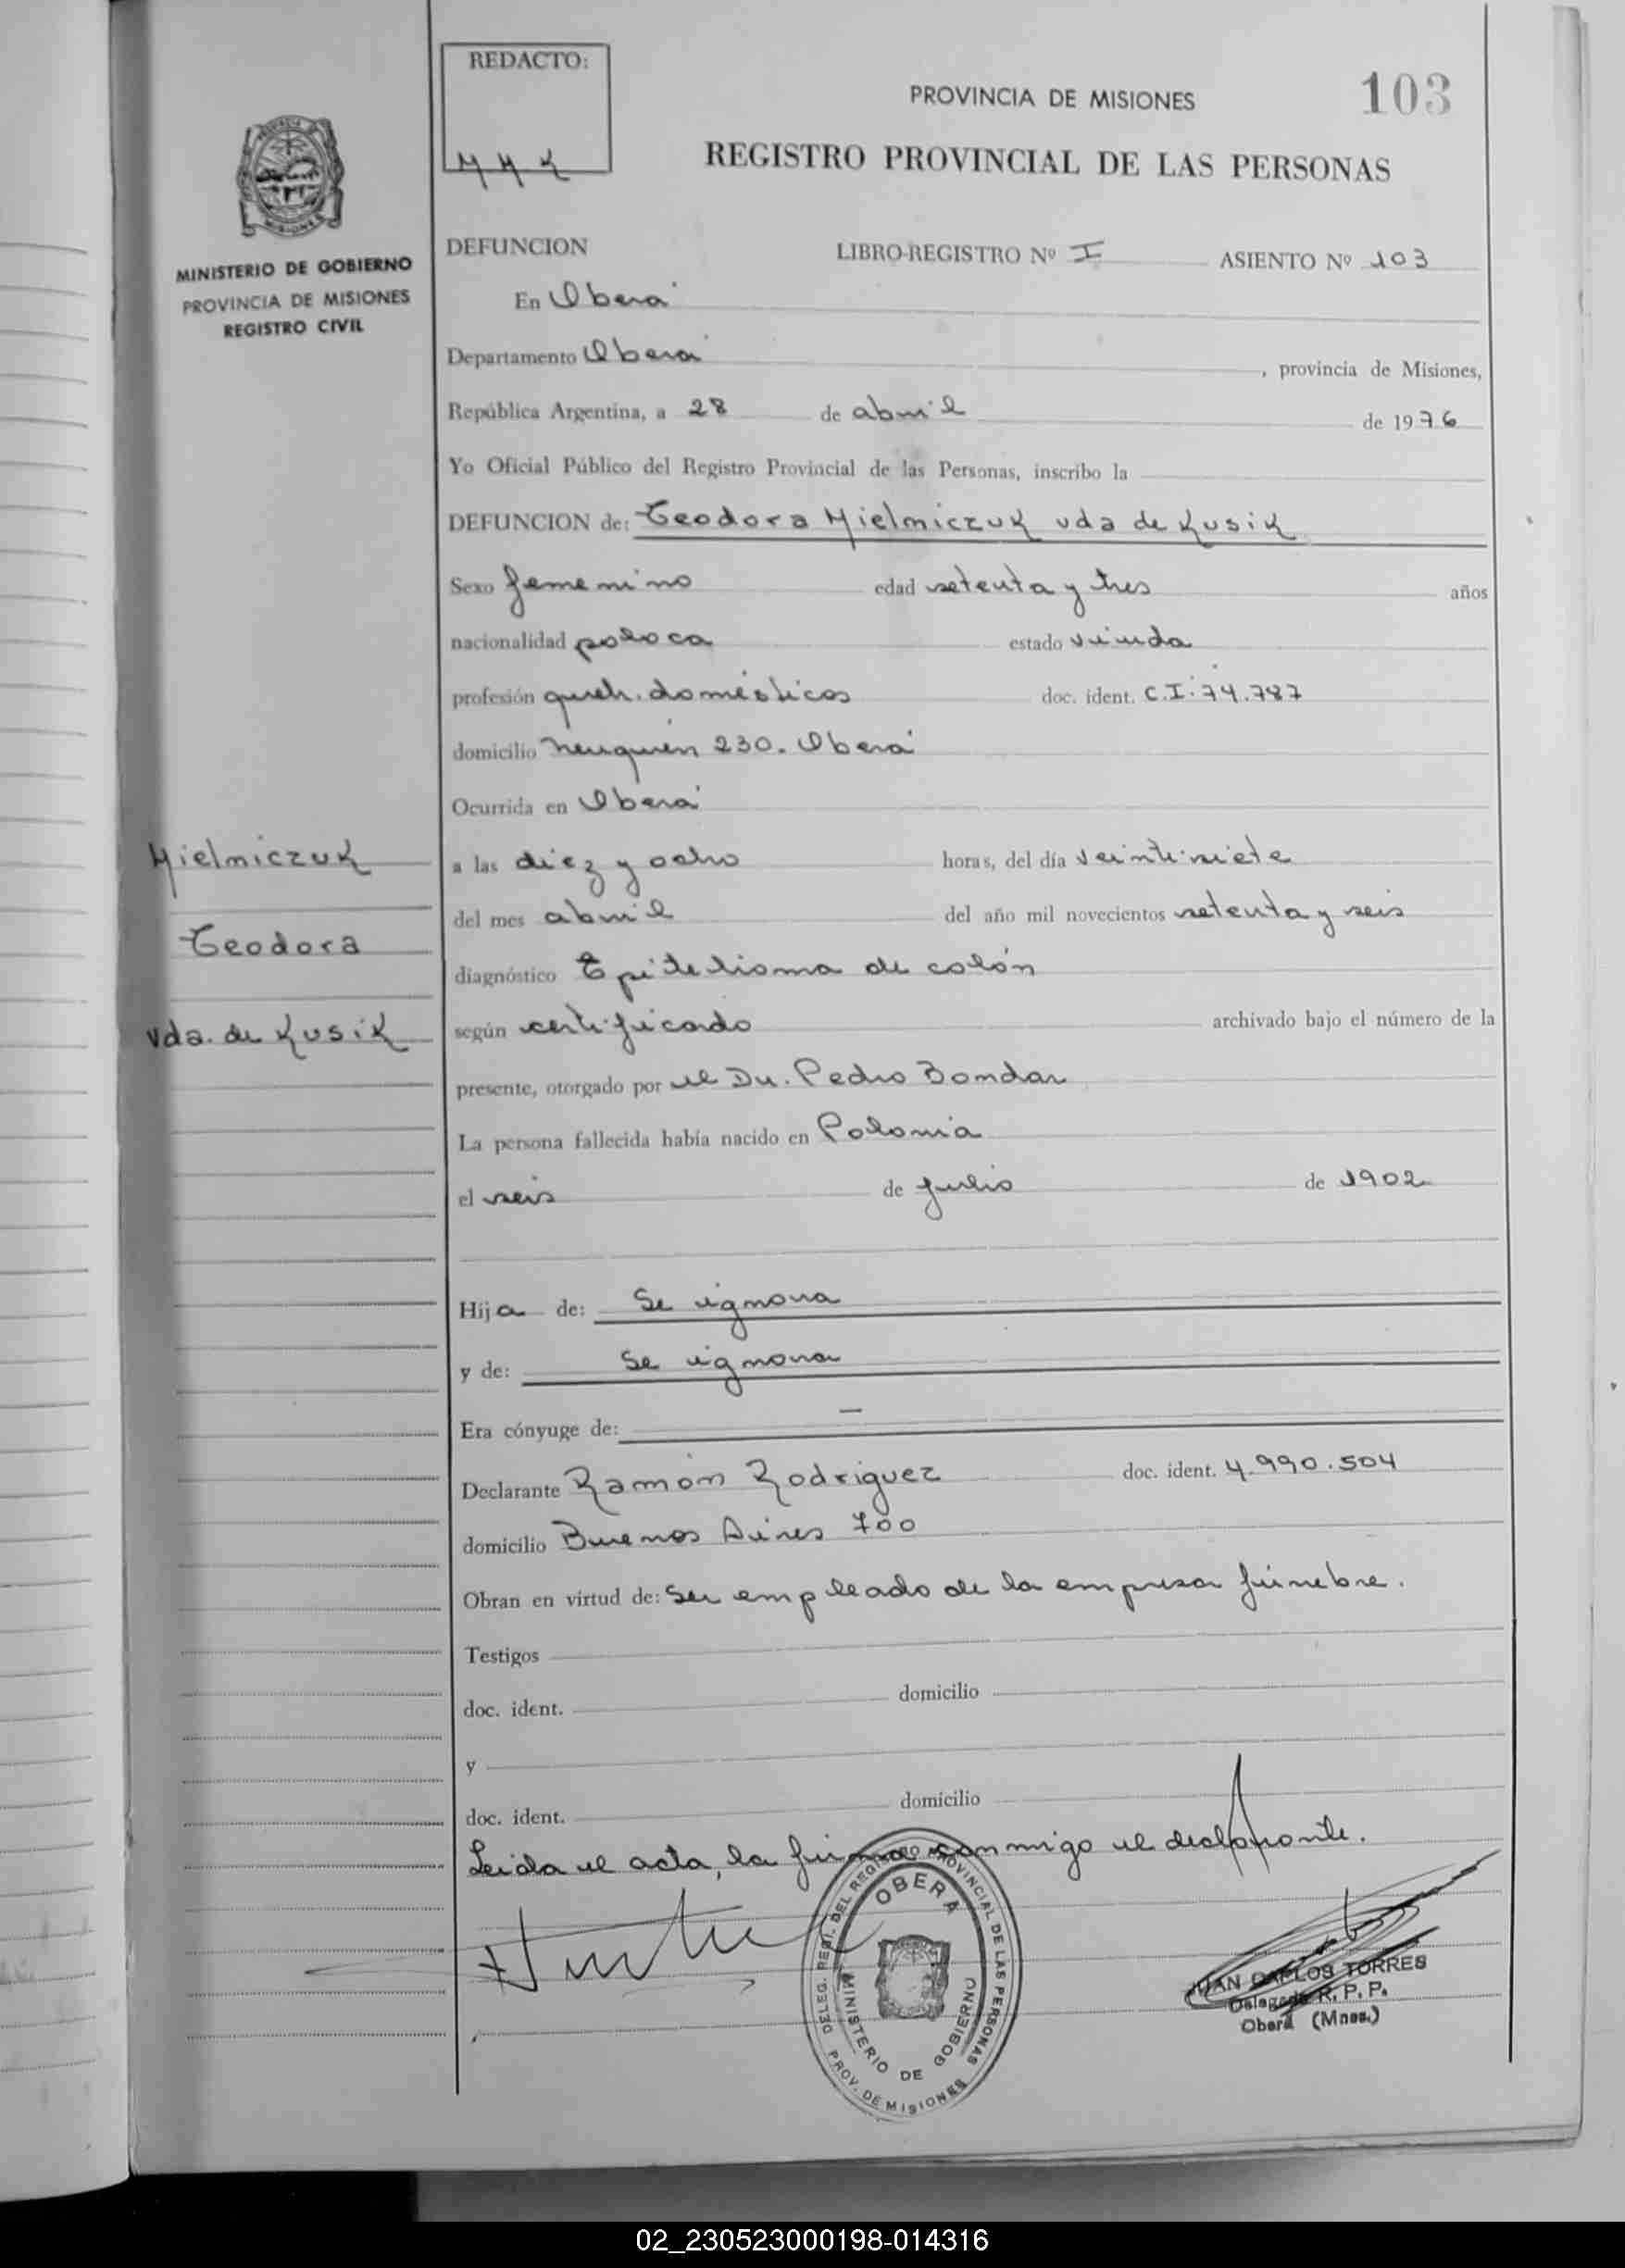 REDACTO:
PROVINCIA DE MISIONES
103
REGISTRO PROVINCIAL DE LAS PERSONAS
MINISTERIO DE GOBIERNO
PROVINCIA DE MISIONES
REGISTRO CIVIL
DEFUNCION LIBRO-REGISTRO Nº I ASIENTO Nº 103
En Oberá
Departamento Oberá, provincia de Misiones,
República Argentina, a 28 de abril de 1976
Yo Oficial Público del Registro Provincial de las Personas, inscribo la
DEFUNCION de: Teodora Mielniczuk vda de Kusik
Sexo femenino edad setenta y tres años
nacionalidad polaca estado viuda
profesión queh. domésticos doc. ident. C.I. 74.787
domicilio Neuquén 230. Oberá
Ocurrida en Oberá
Mielniczuk
a las diez y ocho horas, del día veintisiete
del mes abril del año mil novecientos setenta y seis
Teodora
diagnóstico Epitelioma de colón
vda. de Kusik
según certificado archivado bajo el número de la
presente, otorgado por el Dr. Pedro Bondar
La persona fallecida había nacido en Polonia
el seis de julio de 1902
Hija de: Se ignora
y de: Se ignora
Era cónyuge de: —
Declarante Ramón Rodriguez doc. ident. 4.990.504
domicilio Buenos Aires 700
Obran en virtud de: Ser empleado de la empresa fúnebre.
Testigos
doc. ident. domicilio
y
doc. ident. domicilio
Leida el acta, la firma conmigo el declarante.
DELEG. REGI. DEL REGISTRO PROVINCIAL DE LAS PERSONAS
OBERA
MINISTERIO DE GOBIERNO
PROV. DE MISIONES
JUAN CARLOS TORRES
Delegado R. P. P.
Oberá (Mnes.)
02_230523000198-014316